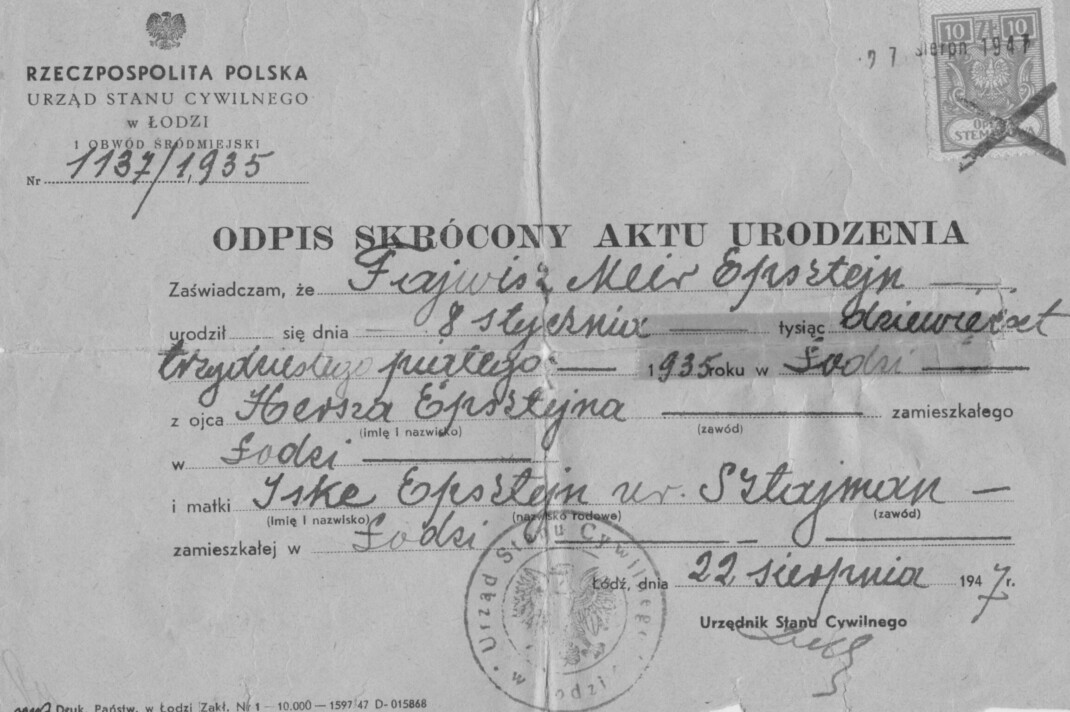 RZECZPOSPOLITA POLSKA
URZĄD STANU CYWILNEGO
w ŁODZI
I OBWÓD ŚRÓDMIEJSKI
Nr 1137/1935
sierpn 1947
10 ZŁ 10
ODPIS SKRÓCONY AKTU URODZENIA
Zaświadczam, że Fajwisz Meir Epsztejn
urodził się dnia 8 stycznia tysiąc dziewięćset
trzydziestego piątego 1935 roku w Łodzi
z ojca Hersza Epsztejna zamieszkałego
(imię i nazwisko) (zawód)
w Łodzi
i matki Iske Epsztejn ur. Sztajman
(imię i nazwisko) (nazwisko rodowe) (zawód)
zamieszkałej w Łodzi
Urząd Stanu Cywilnego w Łodzi
Łódź, dnia 22 sierpnia 1947 r.
Urzędnik Stanu Cywilnego
Druk. Państw. w Łodzi Zakł. Nr 1 — 10.000 — 1597/47 D-015868